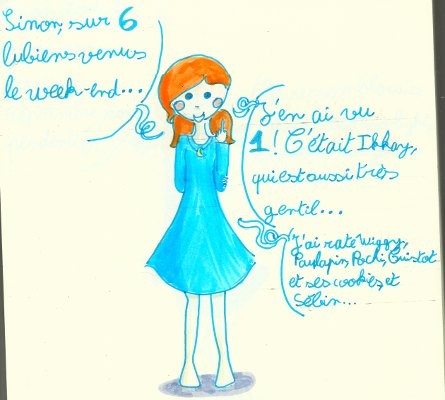 Sinon, sur 6
lubiens venus
le week-end...
J'en ai vu
1! C'était Ikkay,
qui est aussi très
gentil...
J'ai raté Wiggy,
Paulapin, Pochi, Guistot
et ses cookies, et
Sebin...